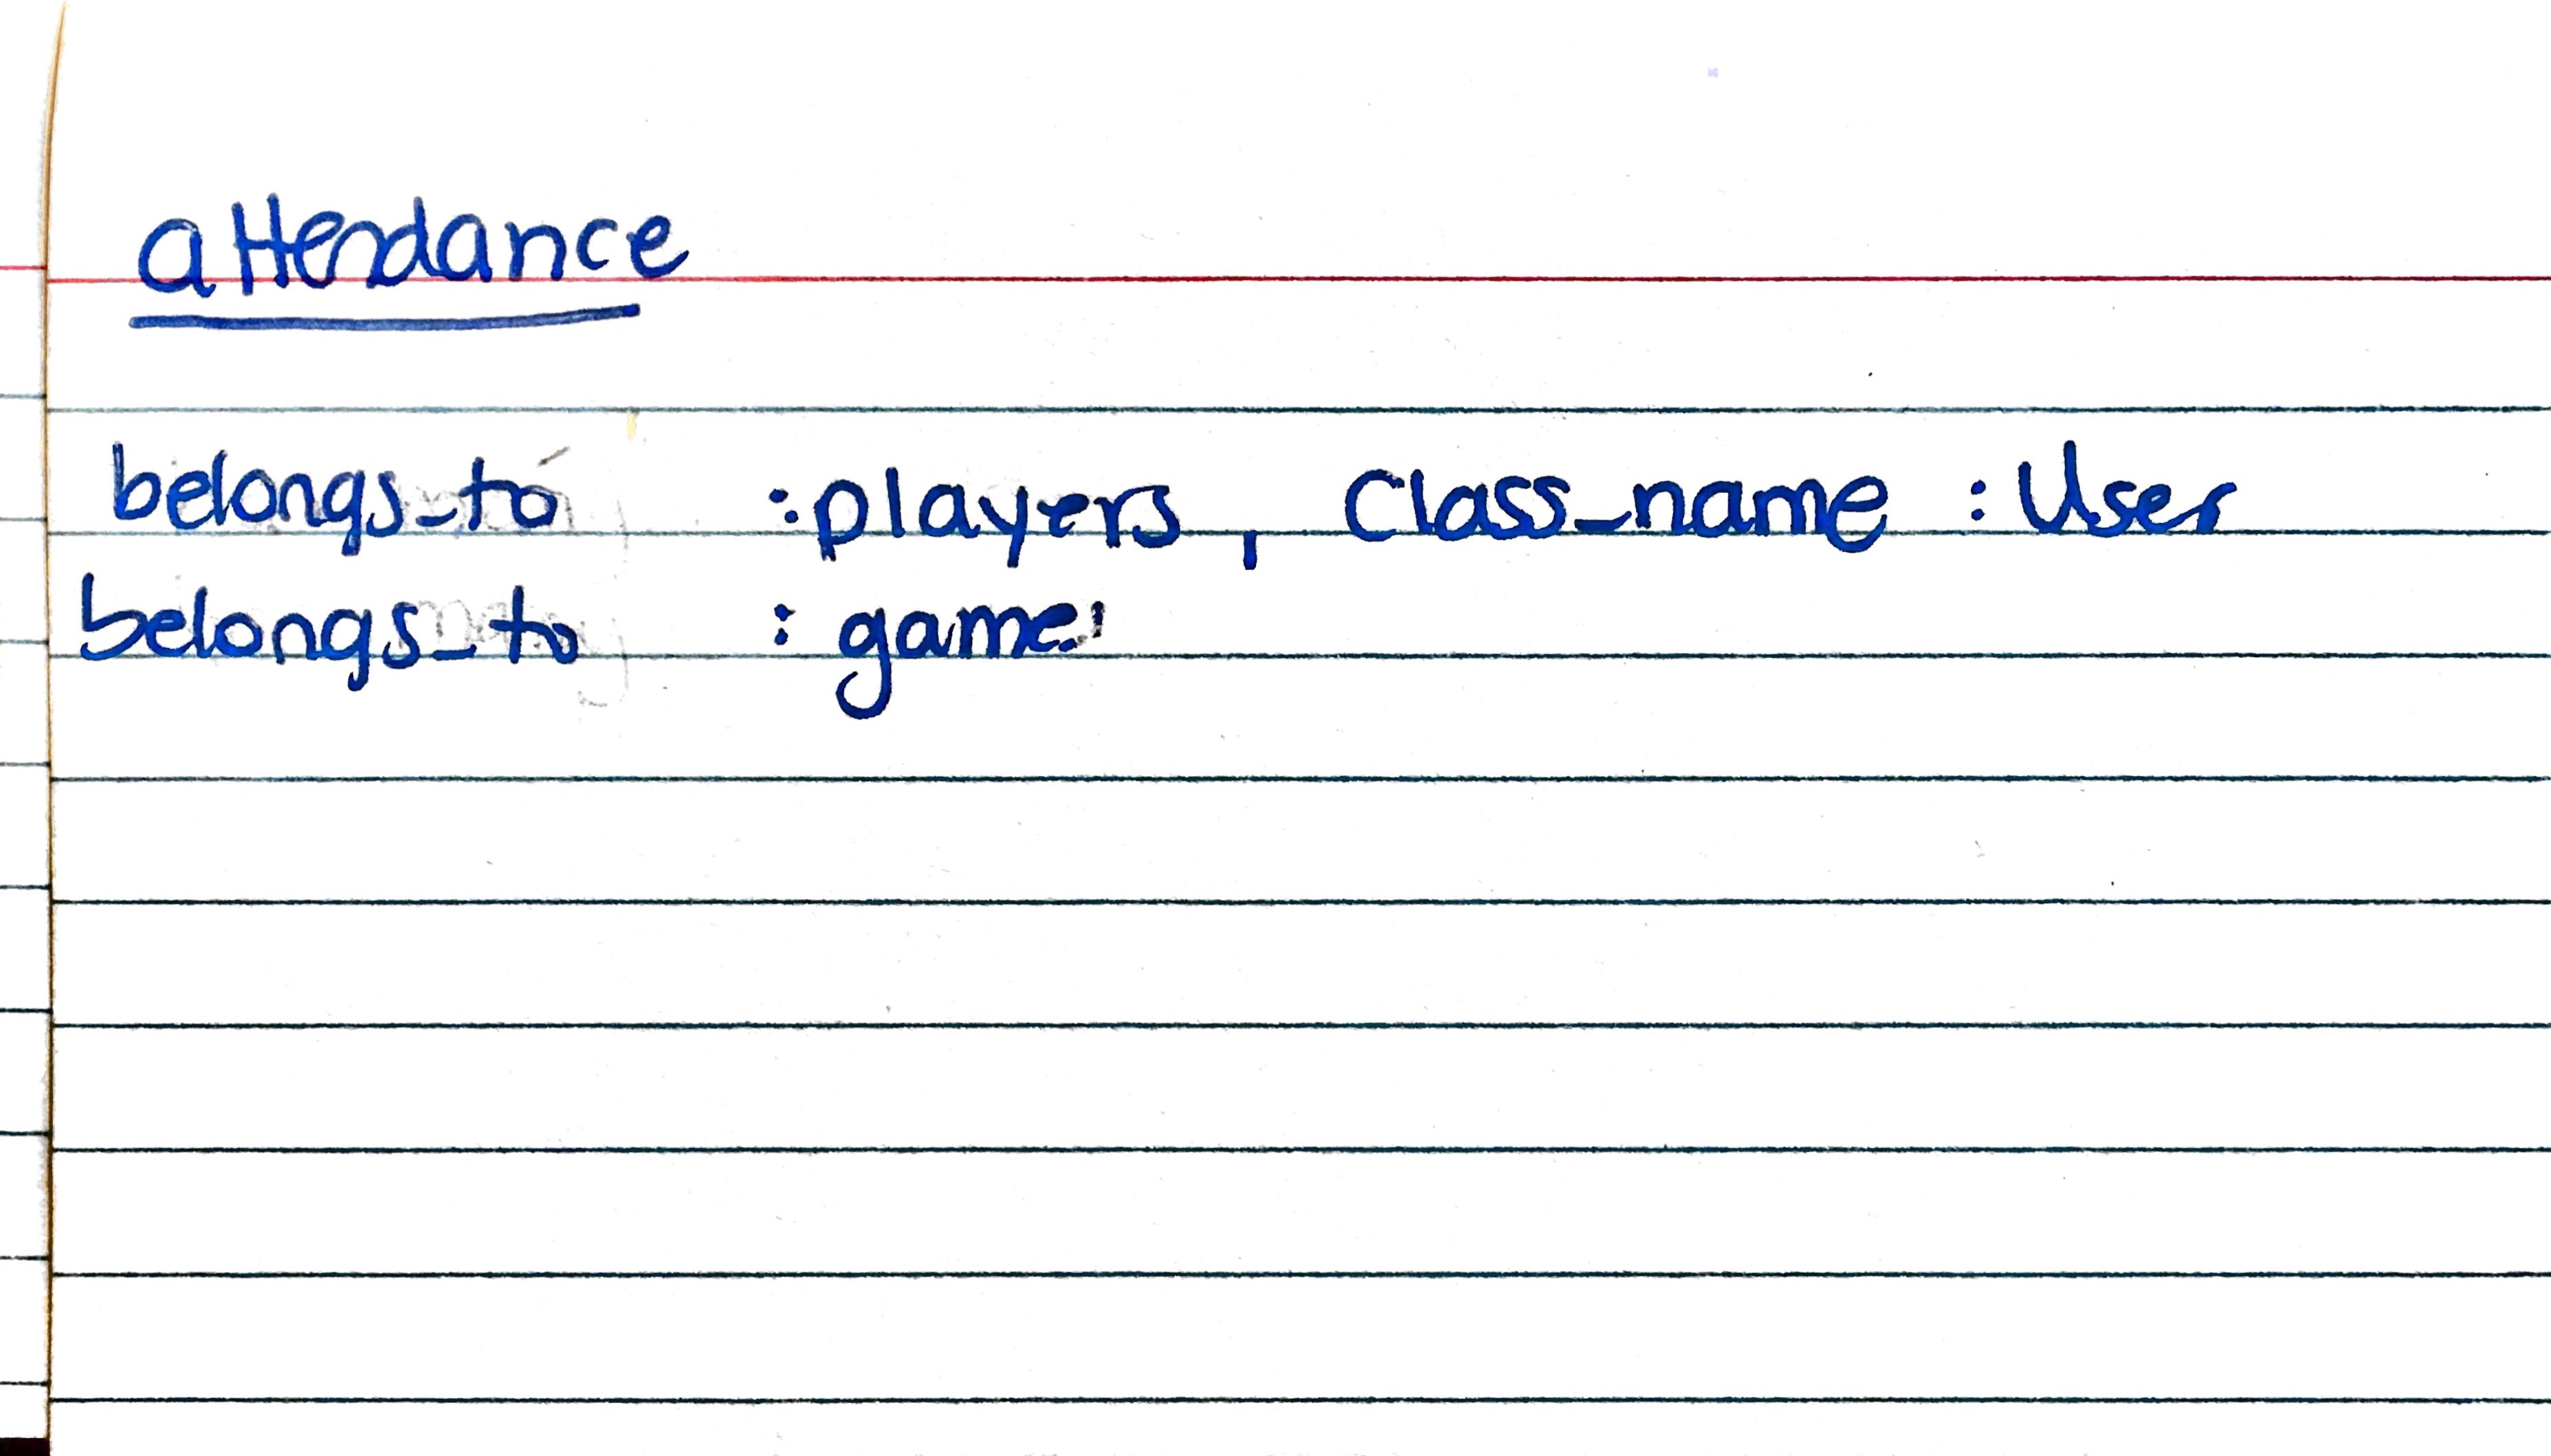 attendance
belongs_to :players, class_name :User
belongs_to :game